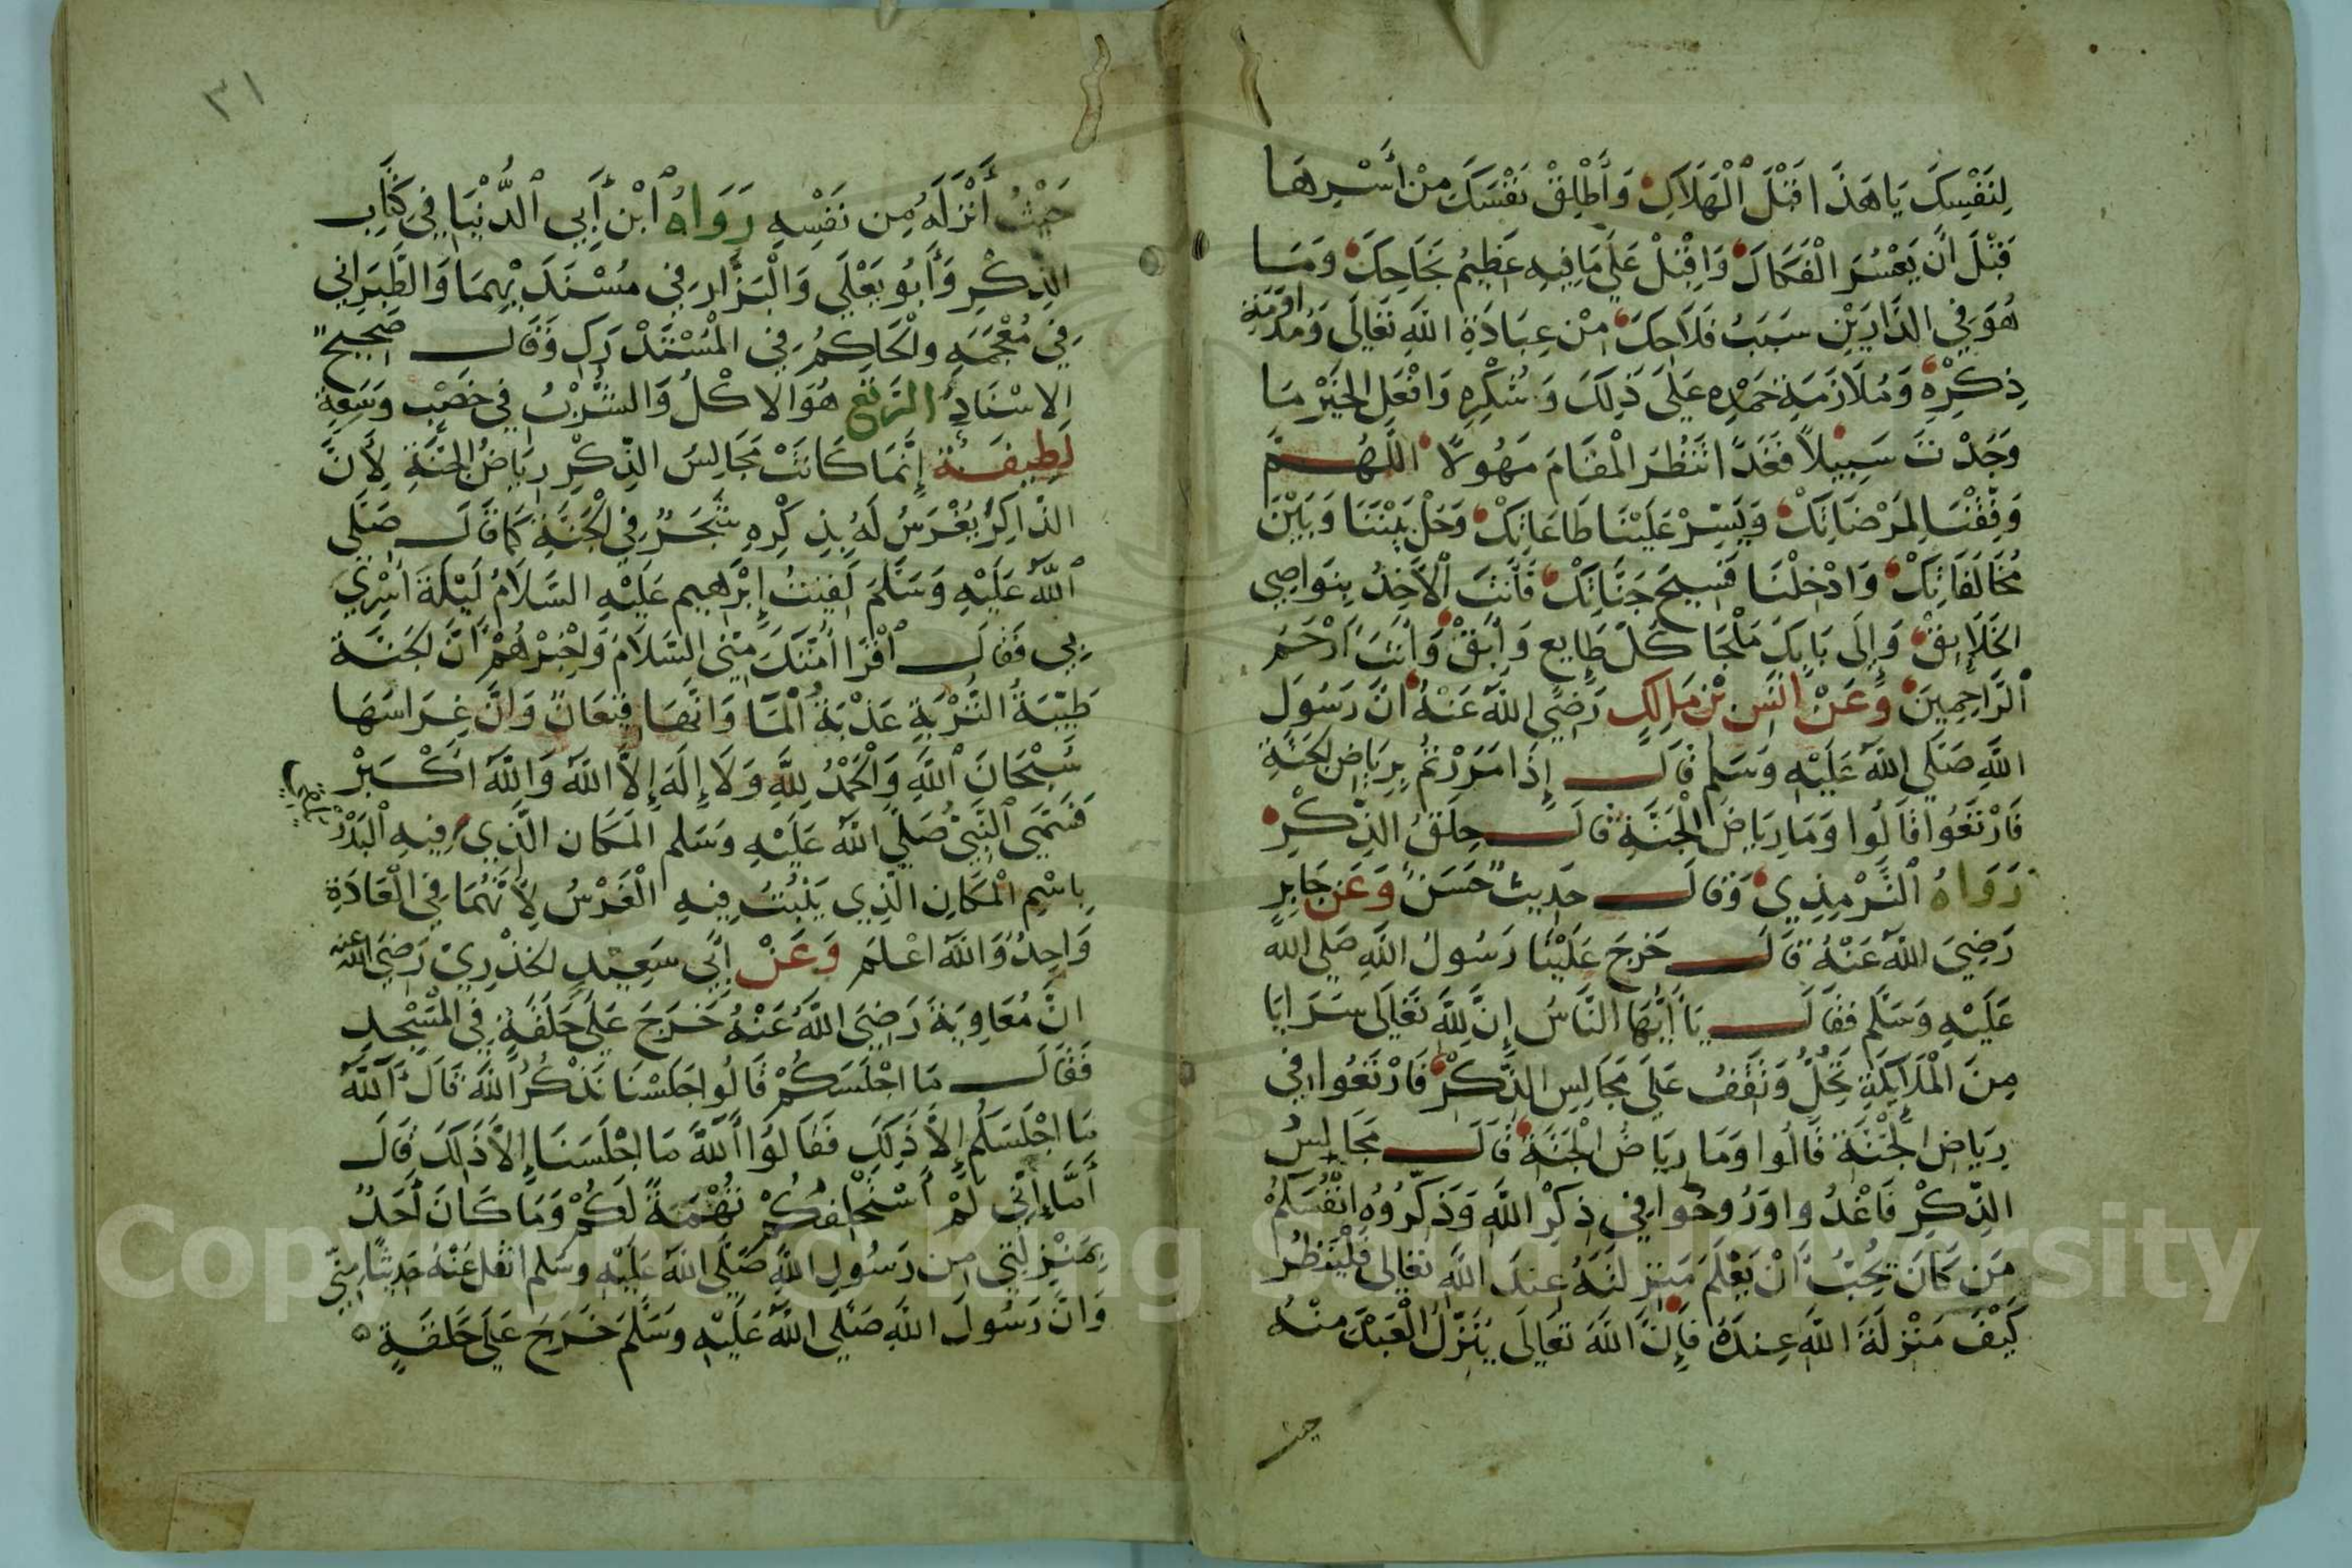 لِنَفْسِكَ يَا هَذَا قَبْلَ الْهَلَاكِ وَأَطْلِقْ نَفْسَكَ مِنْ أَسْرِهَا
قَبْلَ أَنْ يَعْسُرَ الْفَكَاكَ وَاقْبَلْ عَلَى مَا فِيهِ عَظِيمُ نَجَاحِكَ وَمَا
هُوَ فِي الدَّارَيْنِ سَبَبُ فَلَاحِكَ مِنْ عِبَادَةِ اللَّهِ تَعَالَى وَمُدَاوَمَةِ
ذِكْرِهِ وَمُلَازَمَةِ حَمْدِهِ عَلَى ذَلِكَ وَشُكْرِهِ وَافْعَلِ الْخَيْرَ مَا
وَجَدْتَ سَبِيلًا فَغَدًا تَنْظُرُ الْمَقَامَ مَهُولًا اللَّهُمَّ
وَفِّقْنَا لِمَرْضَاتِكْ وَيَسِّرْ عَلَيْنَا طَاعَاتِكْ وَحُلْ بَيْنَنَا وَبَيْنَ
مُخَالَفَاتِكْ وَادْخِلْنَا فَسِيحَ جَنَّاتِكْ فَأَنْتَ الْآخِذُ بِنَوَاصِي
الْخَلَايِقْ وَإِلَى بَابِكَ مَلْجَا كُلِّ طَايِعٍ وَآبِقْ وَأَنْتَ أَرْحَمُ
الرَّاحِمِينَ وَعَنْ أَنَسِ بْنِ مَالِكٍ رَضِيَ اللَّهُ عَنْهُ أَنَّ رَسُولَ
اللَّهِ صَلَّى اللَّهُ عَلَيْهِ وَسَلَّم قَالَ إِذَا مَرَرْتُمْ بِرِيَاضِ الْجَنَّةِ
فَارْتَعُوا قَالُوا وَمَا رِيَاضُ الْجَنَّةِ قَالَ حِلَقُ الذِّكْرِ
رَوَاهُ التِّرْمِذِي وَقَالَ حَدِيثٌ حَسَنٌ وَعَنْ جَابِرٍ
رَضِيَ اللَّهُ عَنْهُ قَالَ خَرَجَ عَلَيْنَا رَسُولُ اللَّهِ صَلَّى اللَّهُ
عَلَيْهِ وَسَلَّم فَقَالَ يَا أَيُّهَا النَّاسُ إِنَّ لِلَّهِ تَعَالَى سَرَايَا
مِنَ الْمَلَايِكَةِ تَحُلُّ وَتَقِفُ عَلَى مَجَالِسِ الذِّكْرْ فَارْتَعُوا فِي
رِيَاضِ الْجَنَّةِ قَالُوا وَمَا رِيَاضُ الْجَنَّةِ قَالَ مَجَالِسُ
الذِّكْرِ فَاغْدُوا وَرُوحُوا فِي ذِكْرِ اللَّهِ وَذَكِّرُوهُ انْفُسَكُمْ
مَنْ كَانَ يُحِبُّ أَنْ يَعْلَمَ مَنْزِلَتَهُ عِنْدَ اللَّهِ تَعَالَى فَلْيَنْظُرْ
كَيْفَ مَنْزِلَةُ اللَّهِ عِنْدَهُ فَإِنَّ اللَّهَ تَعَالَى يُنَزِّلُ الْعَبْدَ مِنْهُ
حيث
٣١
حَيْثُ أَنْزَلَهُ مِنْ نَفْسِهِ رَوَاهُ ابْنُ أَبِي الدُّنْيَا فِي كِتَابِ
الذِّكْرِ وَأَبُو يَعْلَى وَالْبَزَّار فِي مُسْنَدَيْهِمَا وَالطَّبَرَانِي
فِي مُعْجَمِهِ وَالْحَاكِمُ فِي الْمُسْتَدْرَكِ وَقَالَ صَحِيحُ
الاسْنَادِ الرَّتْعُ هُوَ الاكْلُ وَالشُّرْبُ فِي خَصْبٍ وَسَعَةٍ
لَطِيفَة إِنَّمَا كَانَتْ مَجَالِسُ الذِّكْرِ رِيَاضُ الْجَنَّةِ لِأَنَّ
الذَّاكِرَ يُغْرَسُ لَهُ بِذِكْرِهِ شَجَرٌ فِي الْجَنَّةِ كَمَا قَالَ صَلَّى
اللَّهُ عَلَيْهِ وَسَلَّمَ لَقِيتُ إِبْرَاهِيمَ عَلَيْهِ السَّلَامُ لَيْلَةَ أُسْرِيَ
بِي فَقَالَ أَقْرِأْ أُمَّتَكَ مِنِّي السَّلَامَ وَاخْبِرْهُمْ أَنَّ الْجَنَّةَ
طَيِّبَةُ التُّرْبَةِ عَذْبَةُ الْمَا وَأَنَّهَا قِيعَانٌ وَأَنَّ غِرَاسَهَا
سُبْحَانَ اللَّهِ وَالْحَمْدُ لِلَّهِ وَلَا إِلَهَ إِلَّا اللَّهُ وَاللَّهُ أَكْبَرْ
فَسَمَّى النَّبِيُّ صَلَّى اللَّهُ عَلَيْهِ وَسَلَّم الْمَكَانَ الَّذِي فِيهِ الْبَذْرُ
بِاسْمِ الْمَكَانِ الَّذِي يَنْبُتُ فِيهِ الْغَرْسُ لِأَنَّهُمَا فِي الْعَادَةِ
وَاحِدٌ وَاللَّهُ اعْلَم وَعَنْ أَبِي سَعِيدٍ الْخُدْرِيْ رَضِيَ اللَّهُ عنه
انَّ مُعَاوِيَةَ رَضِيَ اللَّهُ عَنْهُ خَرَجَ عَلَى حَلْقَةٍ فِي الْمَسْجِدِ
فَقَالَ مَا اجْلَسَكُمْ قَالُوا جَلَسْنَا نَذْكُرُ اللَّهَ قَالَ آللَّهِ
مَا اجْلَسَكُم إِلَّا ذَلِكَ فَقَالُوا آللَّهِ مَا اجْلَسَنَا إِلَّا ذَلِكَ قَالَ
أَمَّا إِنِّي لَمْ أَسْتَحْلِفْكُمْ تُهْمَةً لَكُمْ وَمَا كَانَ أَحَدٌ
بِمَنْزِلَتِي مِنْ رَسُولِ اللَّهِ صَلَّى اللَّهُ عَلَيْهِ وَسَلَّم اقَلَّ عَنْهُ حَدِيثًا مِنِّي
وَانَّ رَسُولَ اللَّهِ صَلَّى اللَّهُ عَلَيْهِ وَسَلَّمَ خَرَجَ عَلَى حَلْقَةٍ
Copyright © King Saud University